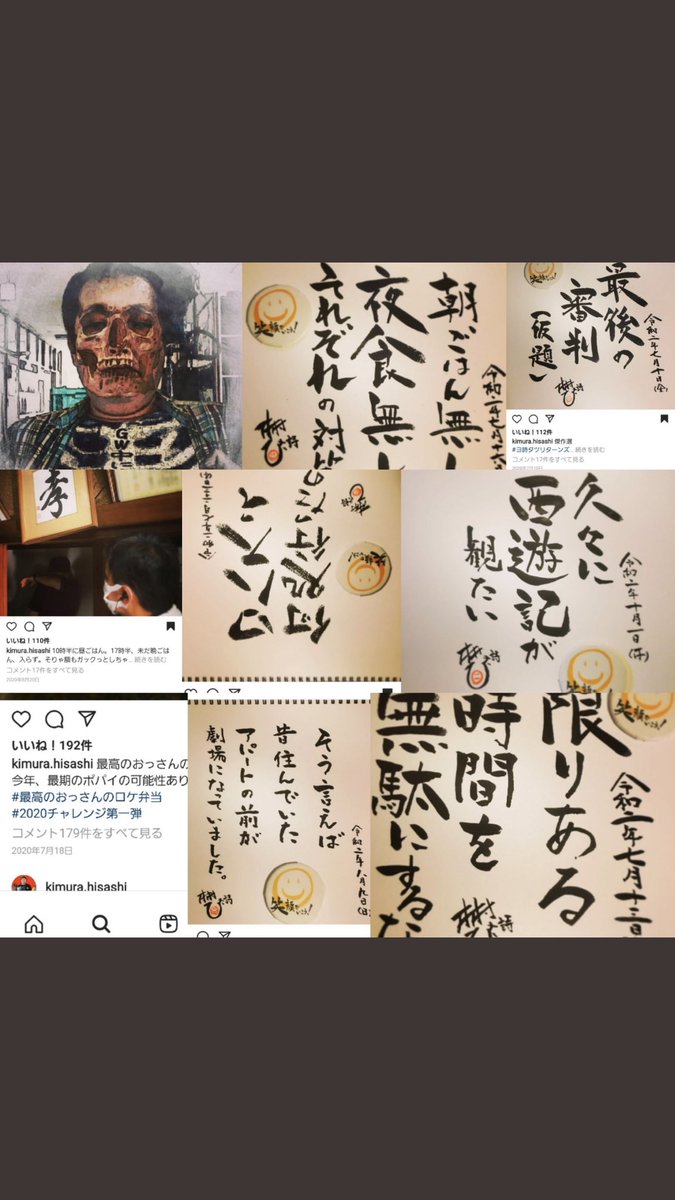 GW十
朝ごはん無し
夜食無し
それぞれの対策
令和二年七月十六
笑顔でいこう!
最後の
審判
(仮題)
令和二年七月十日(金)
いいね!112件
kimura.hisashi 傑作選
#ヨ時ダツリターンズ... 続きを読む
コメント17件をすべて見る
2020年7月10日
孝
いいね!110件
kimura.hisashi 10時半に昼ごはん。17時半、未だ晩ごは
ん、入らず。そりゃ頬もガックっとしちゃ... 続きを読む
コメント17件をすべて見る
2020年8月20日
何処行ったの
久々に
西遊記が
観たい
令和二年十月一日(木)
いいね!192件
kimura.hisashi 最高のおっさんの
今年、最期のポパイの可能性あり
#最高のおっさんのロケ弁当
#2020チャレンジ第一弾
コメント179件をすべて見る
2020年7月18日
kimura.hisashi
そう言えば
昔住んでいた
アパートの前が
劇場になっていました。
令和二年八月九日(日)
笑顔でいこう!
限りある
時間を
無駄にするな
令和二年七月十二日
笑顔でいこう!